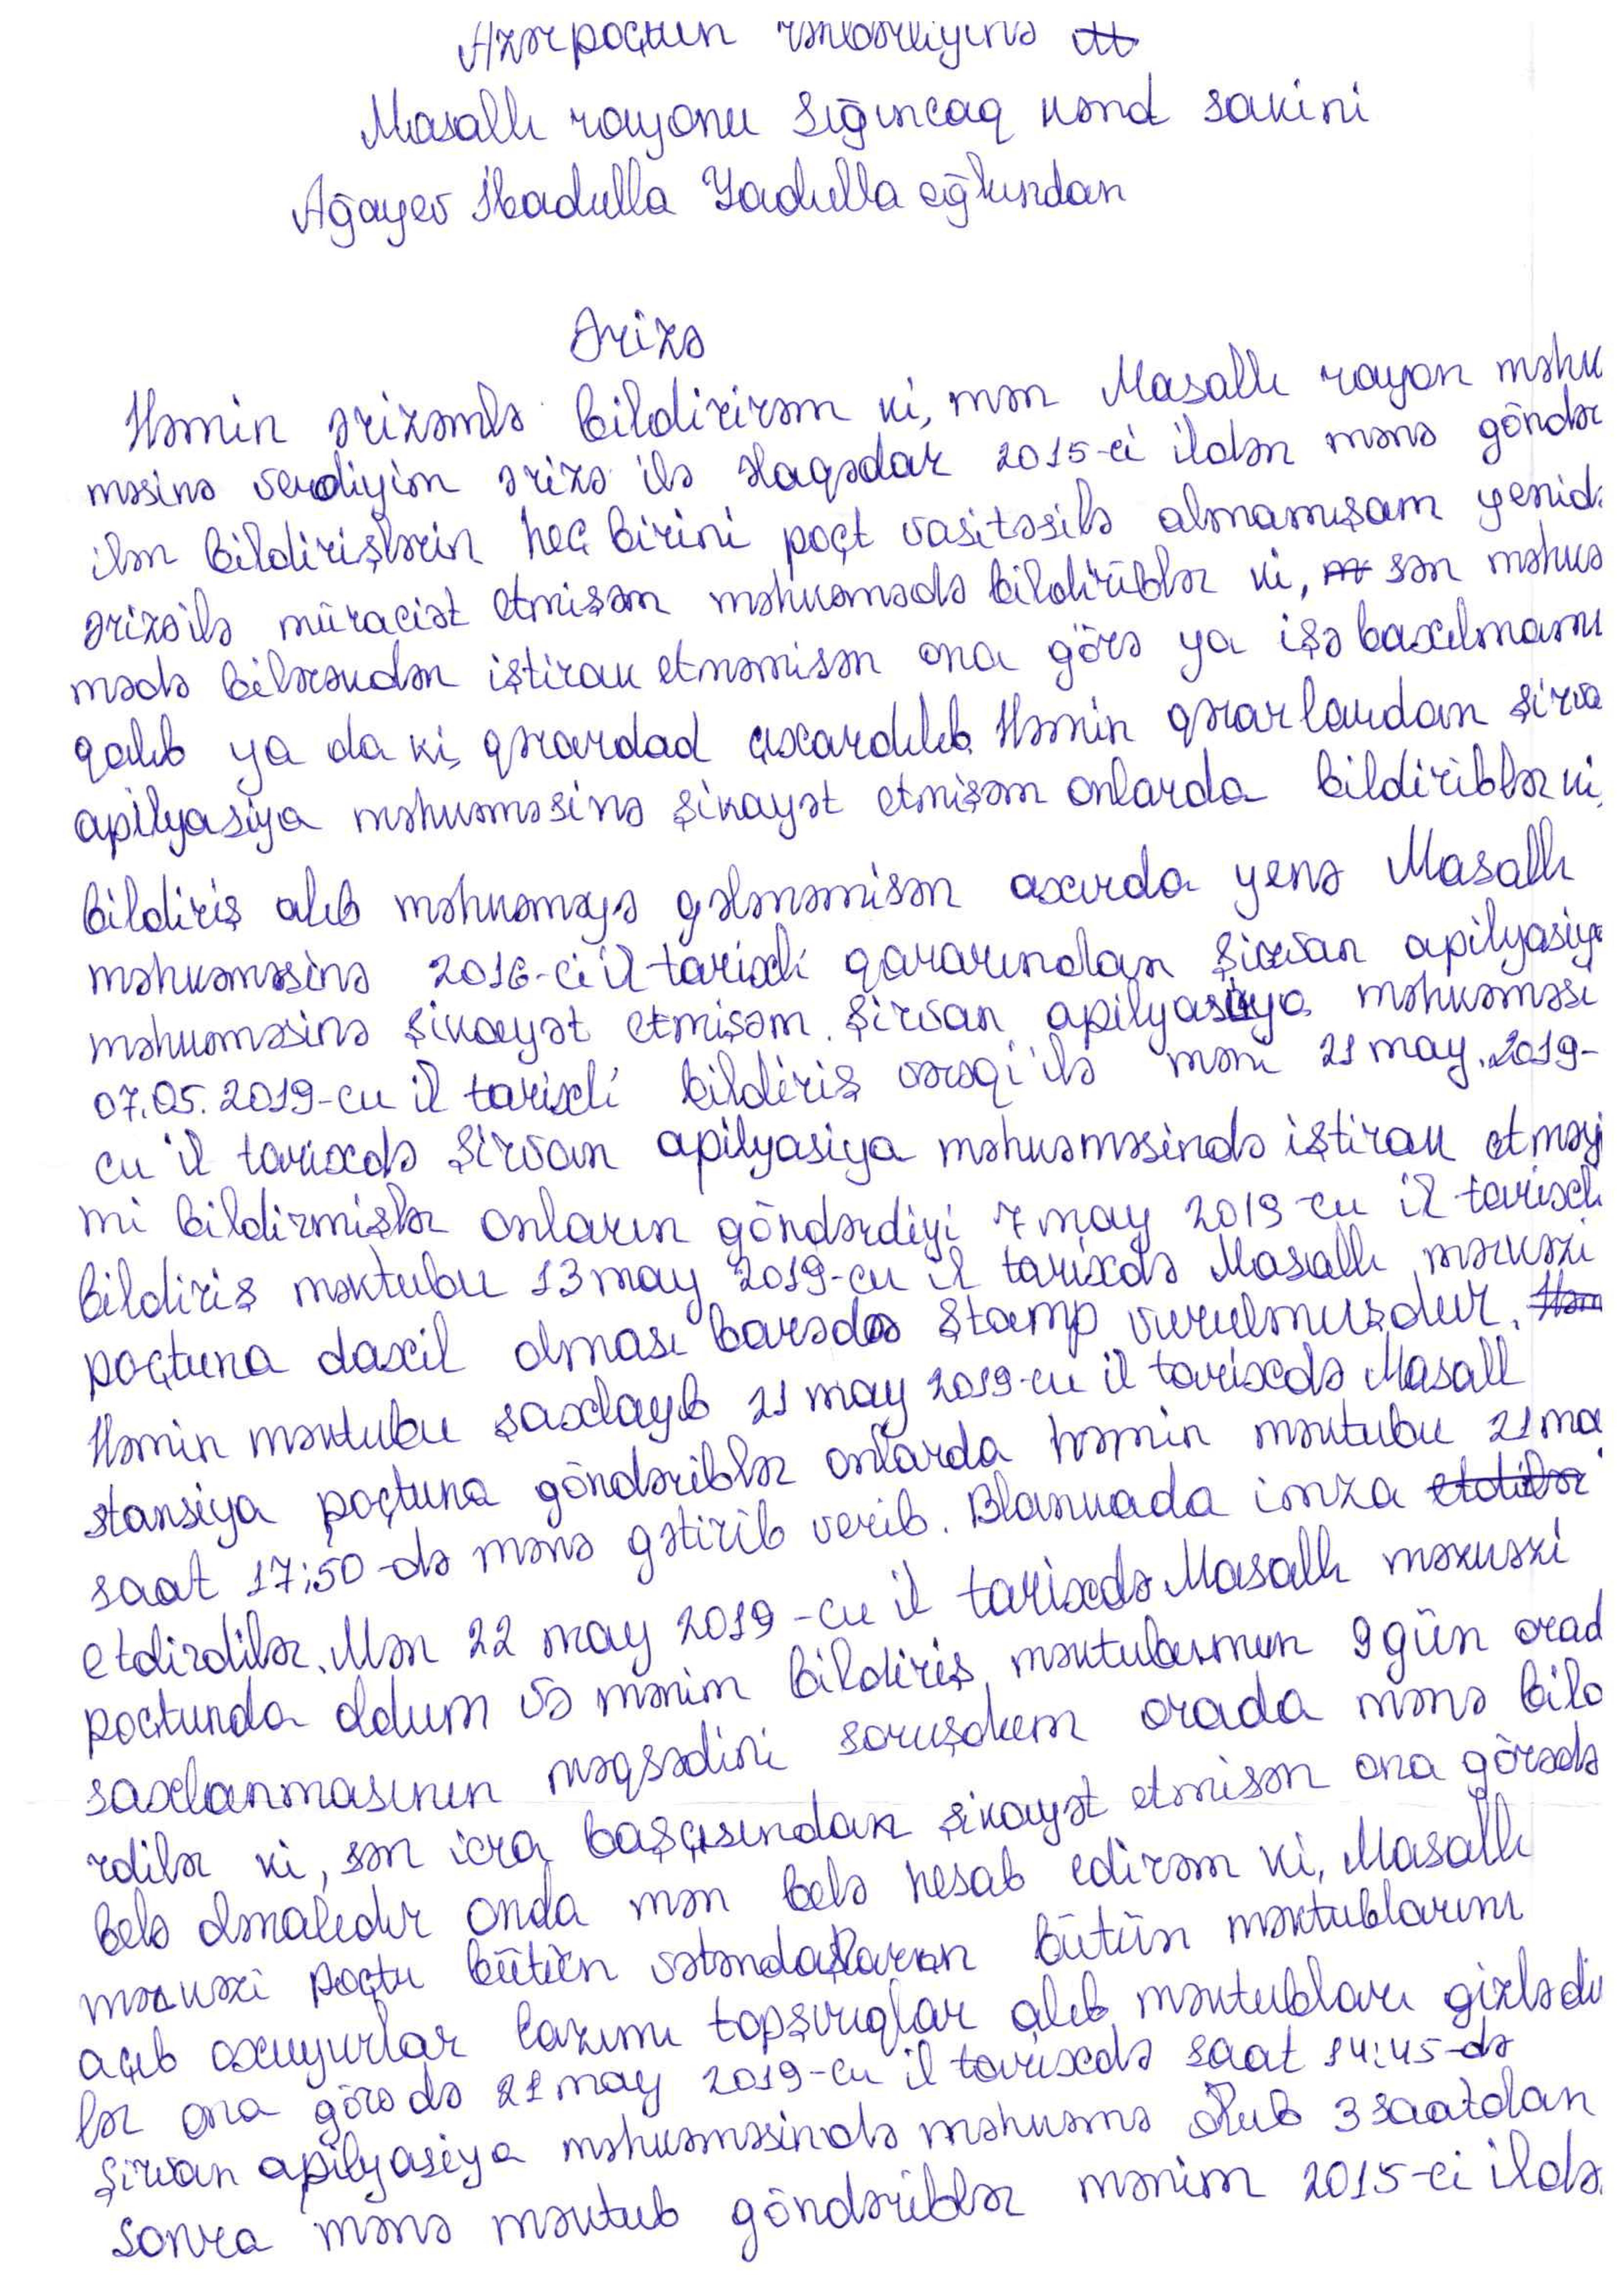 Azərpoçtun rəhbərliyinə
Masallı rayonu Sığıncaq kənd sakini
Ağayev İbadulla Yadulla oğlundan
Ərizə
Həmin ərizəmlə bildirirəm ki, mən Masallı rayon məhk
məsinə verdiyim ərizə ilə əlaqədar 2015-ci ildən mənə göndər
ilən bildirişlərin heç birini poçt vasitəsilə almamışam yenid
ərizə ilə müraciət etmişəm məhkəmədə bildiriblər ki, sən məhkə
mədə bilərəkdən iştirak etməmisən ona görə ya işə baxılmamı
qalıb ya da ki, qərardad çıxardılıb. Həmin qərarlardan Şirva
apilyasiya məhkəməsinə şikayət etmişəm onlarda bildiriblər ki,
bildiriş alıb məhkəməyə gəlməmisən axırda yenə Masallı
məhkəməsinə 2016-ci il tarixli qararından Şirvan apilyasiya
məhkəməsinə şikayət etmişəm. Şirvan apilyasiya məhkəməsi
07.05.2019-cu il tarixli bildiriş vərəqi ilə məni 21 may. 2019-
cu il tarixdə Şirvan apilyasiya məhkəməsində iştirak etməy
mi bildirmişlər onların göndərdiyi 7 may 2019-cu il tarixli
bildiriş məktubu 13 may 2019-cu il tarixdə Masallı mərkəzi
poçtuna daxil olması barədə ştamp vurulmuşdur.
Həmin məktubu saxlayıb 21 may 2019-cu il tarixdə Masall
stansiya poçtuna göndəriblər onlarda həmin məktubu 21 ma
saat 17:50-də mənə gətirib verib. Blankada imza
etdirdilər. Mən 22 may 2019-cu il tarixdə Masallı mərkəzi
poçtunda oldum və mənim bildiriş məktubumun 9 gün orad
saxlanmasının məqsədini soruşdum orada mənə bild
rdilər ki, sən icra başçısından şikayət etmisən ona görədə
belə olmalıdır onda mən belə hesab edirəm ki, Masallı
mərkəzi poçtu bütün vətəndaşların bütün məktublarını
açıb oxuyurlar lazımı tapşırıqlar alıb məktubları gizlədi
lər ona görə də 21 may 2019-cu il tarixdə saat 14:45-də
Şirvan apilyasiya məhkəməsində məhkəmə olub 3 saatdan
sonra mənə məktub göndəriblər mənim 2015-ci ildə